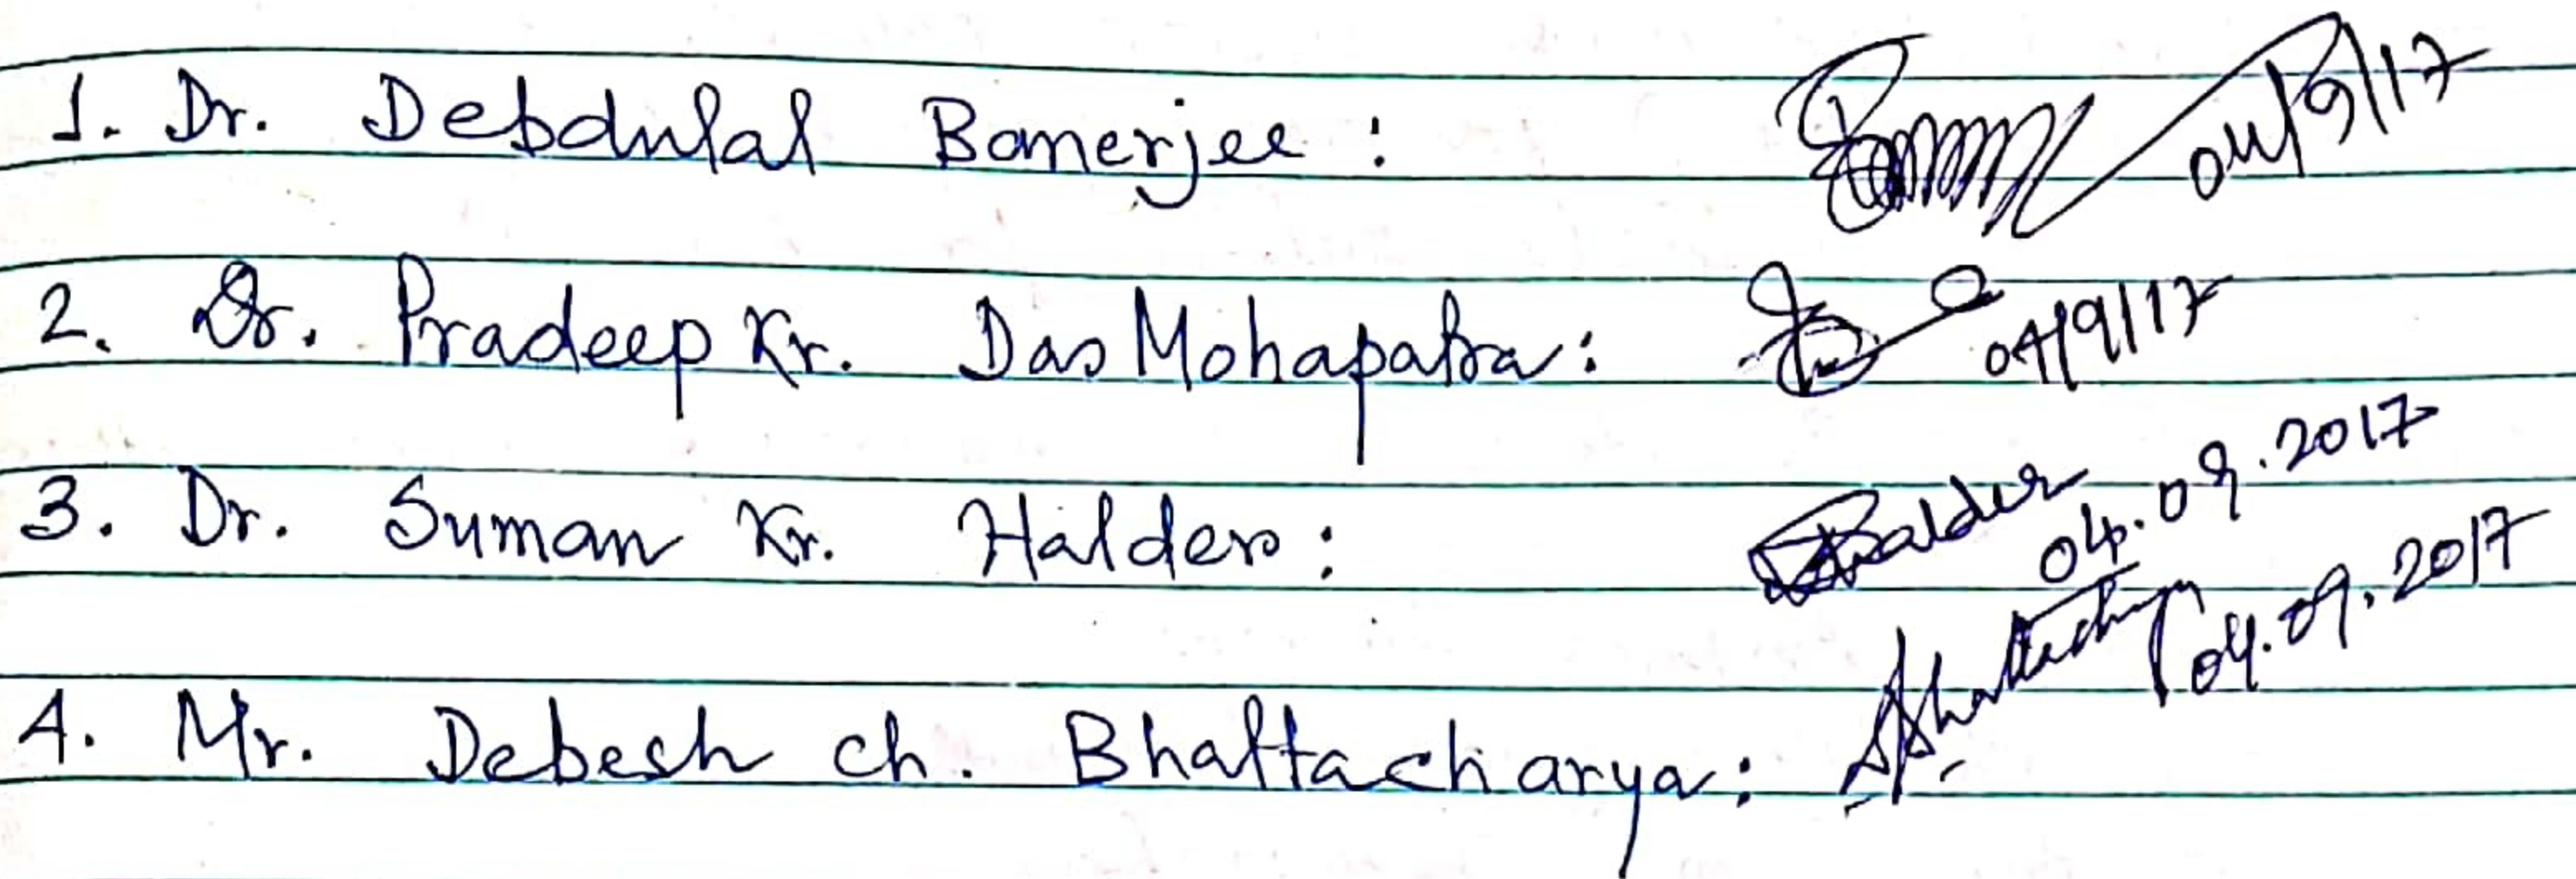 1. Dr. Debdulal Banerjee : 04/9/17
2. Dr. Pradeep Kr. Das Mohapatra : 04/9/17
3. Dr. Suman Kr. Halder : Halder 04.09.2017
4. Mr. Debesh ch. Bhattacharya : 04.09.2017